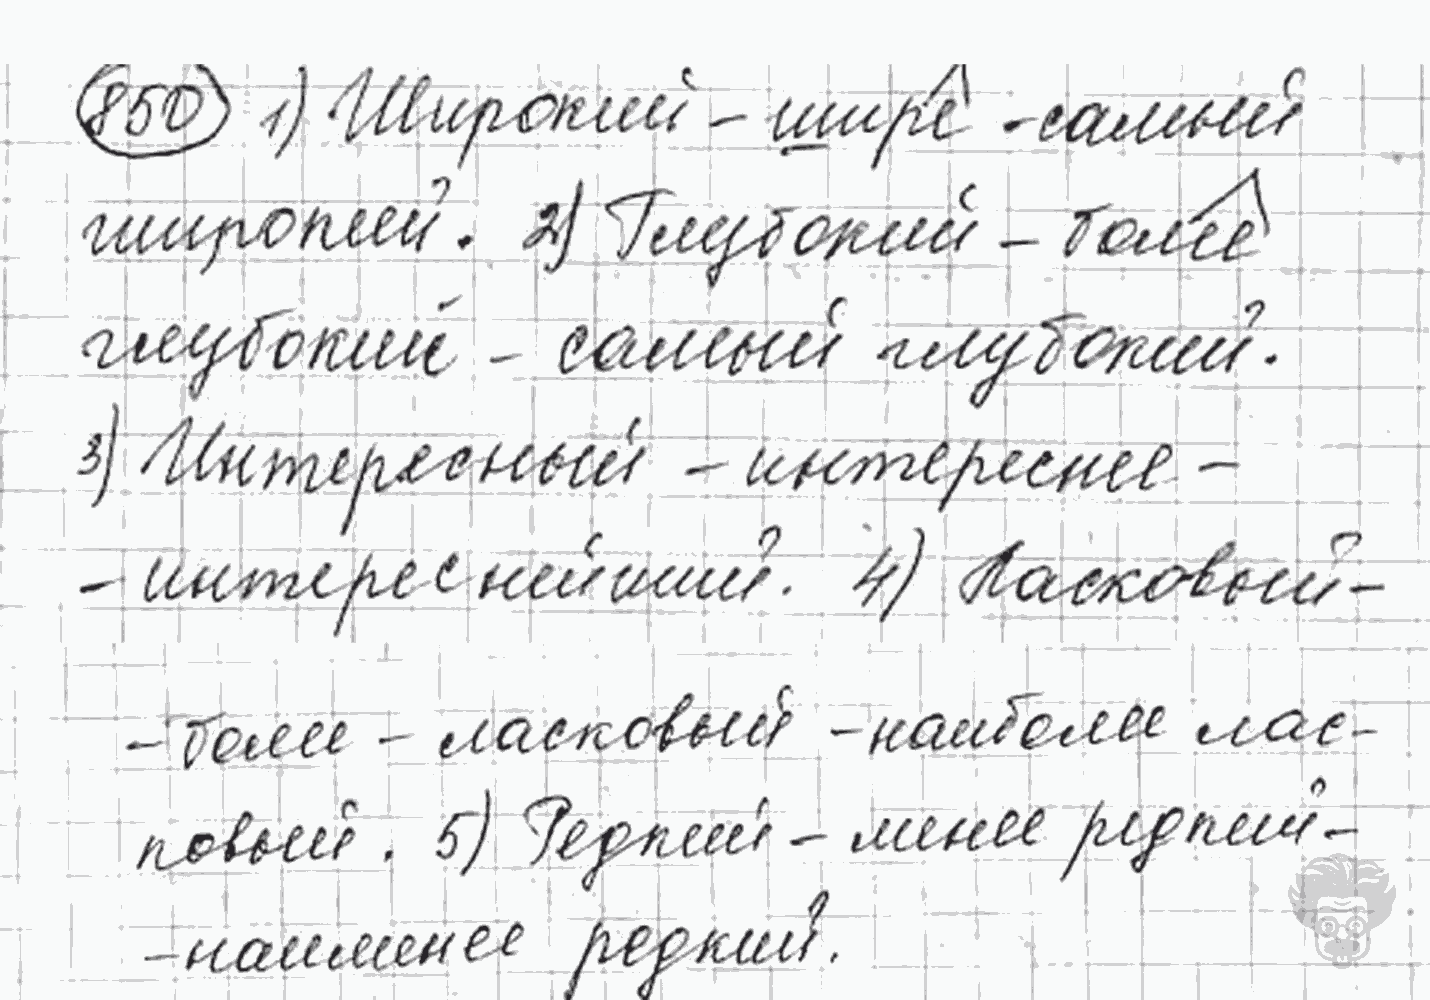 850 1) Широкий – шире - самый
широкий. 2) Глубокий – более
глубокий – самый глубокий.
3) Интересный – интереснее –
– интереснейший. 4) Ласковый –
– более – ласковый – наиболее лас-
ковый. 5) Редкий – менее редкий –
– наименее редкий.